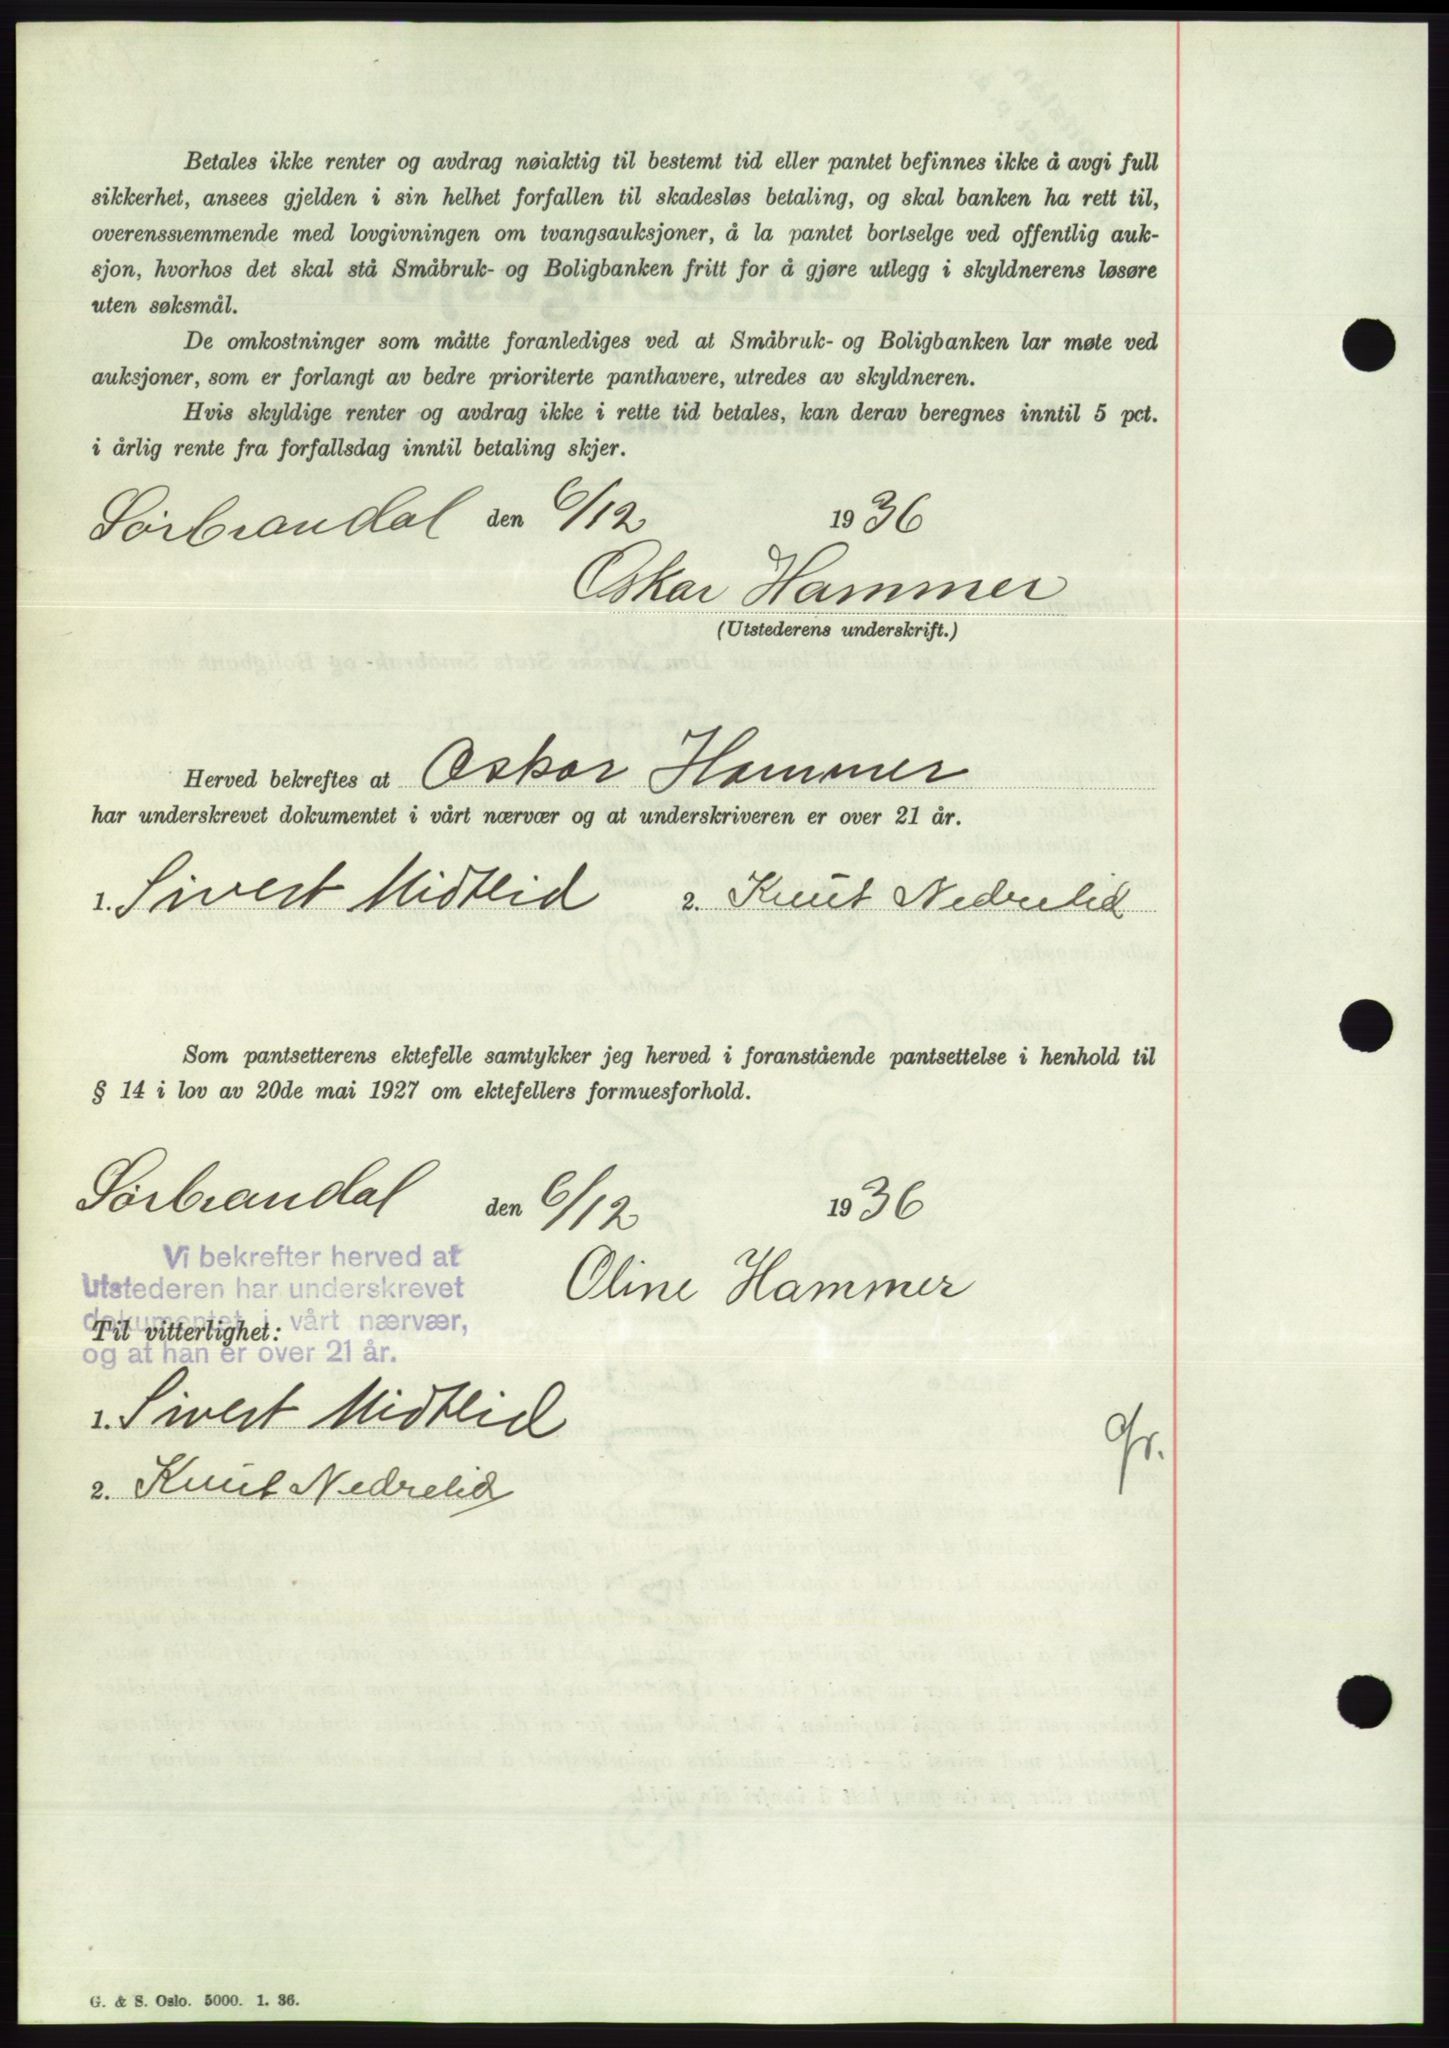 Betales ikke renter og avdrag nøiaktig til bestemt tid eller pantet befinnes ikke å avgi full
sikkerhet, ansees gjelden i sin helhet forfallen til skadesløs betaling, og skal banken ha rett til,
overensstemmende med lovgivningen om tvangsauksjoner, å la pantet bortselge ved offentlig auk-
sjon, hvorhos det skal stå Småbruk- og Boligbanken fritt for å gjøre utlegg i skyldnerens løsøre
uten søksmål.
De omkostninger som måtte foranlediges ved at Småbruk- og Boligbanken lar møte ved
auksjoner, som er forlangt av bedre prioriterte panthavere, utredes av skyldneren.
Hvis skyldige renter og avdrag ikke i rette tid betales, kan derav beregnes inntil 5 pct.
i årlig rente fra forfallsdag inntil betaling skjer.
Sørbrandal den 6/12 1936
Oskar Hammer
(Utstederens underskrift.)
Herved bekreftes at Oskar Hammer
har underskrevet dokumentet i vårt nærvær og at underskriveren er over 21 år.
1. Sivert Midtlid 2. Knut Nedrelid
Som pantsetterens ektefelle samtykker jeg herved i foranstående pantsettelse i henhold til
§ 14 i lov av 20de mai 1927 om ektefellers formuesforhold.
Sørbrandal den 6/12 1936
Vi bekrefter herved at
Utstederen har underskrevet
Oline Hammer
dokumentet i vårt nærvær,
Til vitterlighet:
og at han er over 21 år.
1. Sivert Midtlid
Gr.
2. Knut Nedrelid
G. & S. Oslo. 5000. 1. 36.